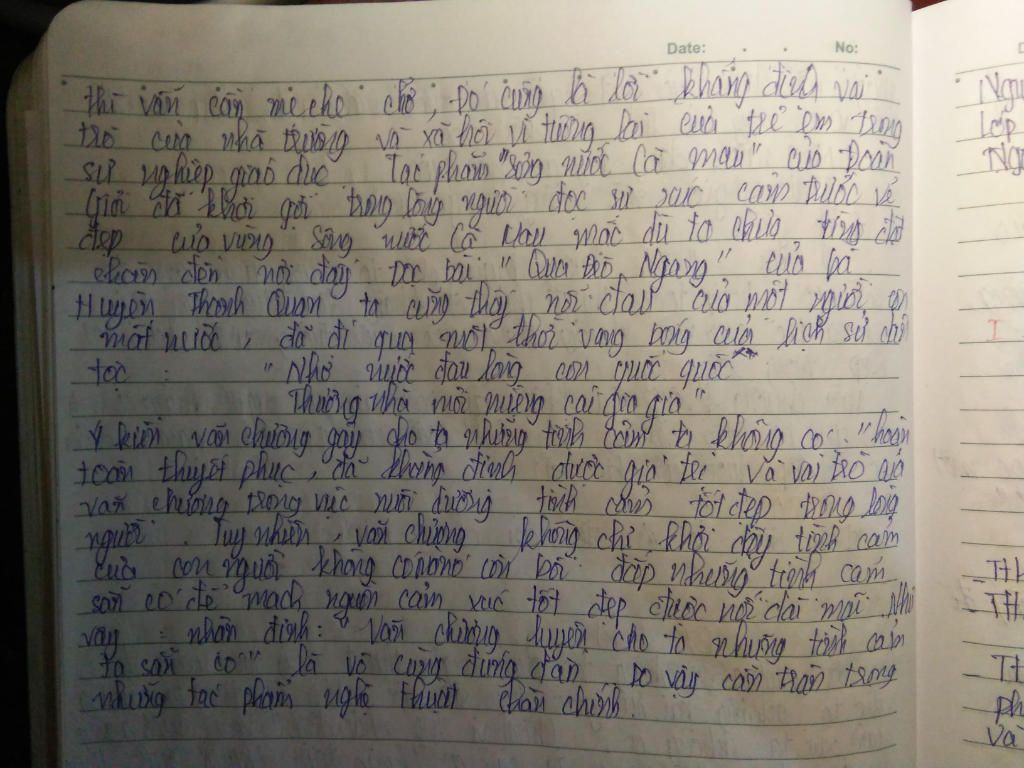 Date: . . No:
thì vẫn cần mẹ che chở, Đó cũng là lời khẳng định vai
trò của nhà trường và xã hội vì tương lai của trẻ em trong
sự nghiệp giáo dục Tác phẩm "sông nước Cà mau" của Đoàn
Giỏi đã khơi gợi trong lòng người đọc sự xúc cảm trước vẻ
đẹp của vùng sông nước Cà Mau mặc dù ta chưa từng đặt
chân đến nơi đây. Đọc bài "Qua Đèo Ngang" của bà
Huyện Thanh Quan ta cũng thấy nỗi đau của một người con
mất nước, đã đi qua một thời vang bóng của lịch sử dân
tộc : "Nhớ nước đau lòng con quốc quốc
Thương nhà mỏi miệng cái gia gia"
Ý kiến văn chương gây cho ta những tình cảm ta không có "hoàn
toàn thuyết phục, đã khẳng định được giá trị và vai trò của
văn chương trong việc nuôi dưỡng tình cảm tốt đẹp trong lòng
người. Tuy nhiên, văn chương không chỉ khơi dậy tình cảm
của con người không có nó còn bồi đắp những tình cảm
sẵn có để mạch nguồn cảm xúc tốt đẹp được nối dài mãi Như
vậy : nhận định: "Văn chương luyện cho ta những tình cảm
ta sẵn có" là vô cùng đúng đắn Do vậy cần trân trọng
những tác phẩm nghệ thuật chân chính.
Lớp
I
Và